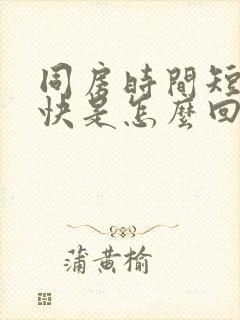 同房時間短
快是怎麼回
蒲黄榆